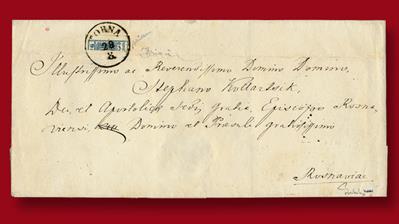 TORNA
28
X
Illustrissimo ac Reverendissimo Domino Domino,
Stephano Kollartsik,
Dei et Apostolicæ Sedis Gratia, Episcopo Rosna-
viensi, Domino et Præsuli gratissimo
Rosnaviae